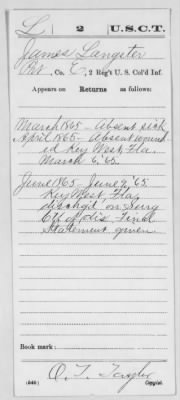 L | 2 | U.S.C.T.
James Langster
Pvt, Co. E, 2 Reg't U. S. Col'd Inf.
Appears on Returns as follows:
March 1865 - Absent sick
April 1865 - Absent wound
ed Key West, Fla.
March 6, '65
June 1865 - June 9, '65
Key West, Fla,
disch'gd on Surg
Ctf of dis. Final
Statement given
Book mark:
(546)
Copyist.